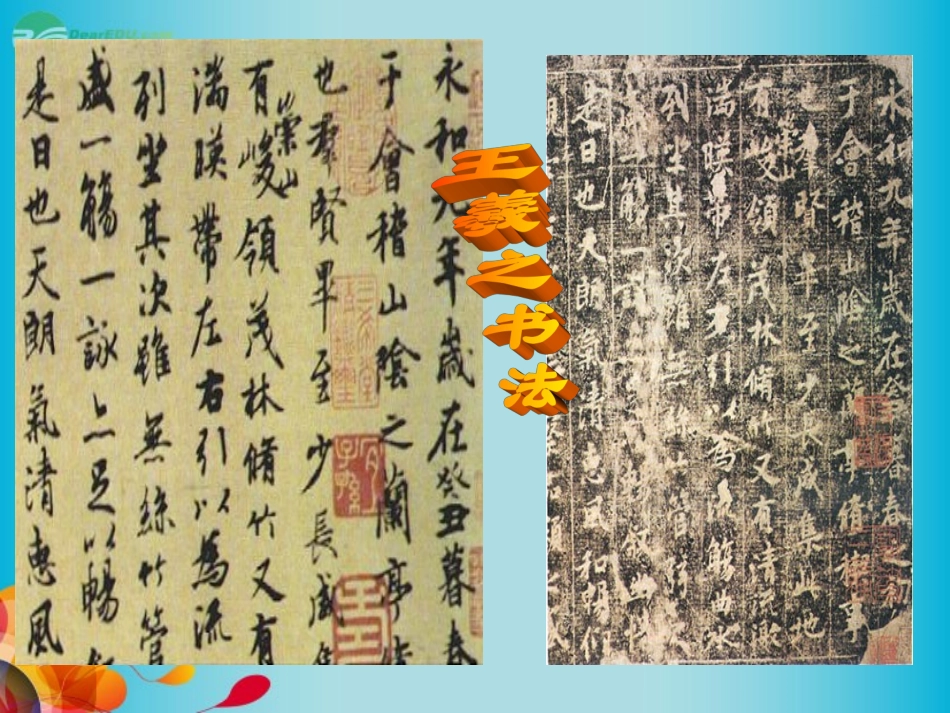 DearEDU.com
王羲之书法
永和九年歲在癸丑暮春
于會稽山陰之蘭亭
也羣賢畢至少長咸
有崇山峻領茂林脩竹又有
湍暎帶左右引以為流
列坐其次雖無絲竹管
盛一觴一詠亦足以暢
是日也天朗氣清惠風
永和九年歲在癸丑暮春之初
于會稽山陰之蘭亭脩稧事
也羣賢畢至少長咸集此地
有崇山峻領茂林脩竹又有清流激
湍暎帶左右引以為流觴曲水
列坐其次雖無絲竹管弦之
盛一觴一詠亦足以暢叙幽情
是日也天朗氣清惠風和暢仰